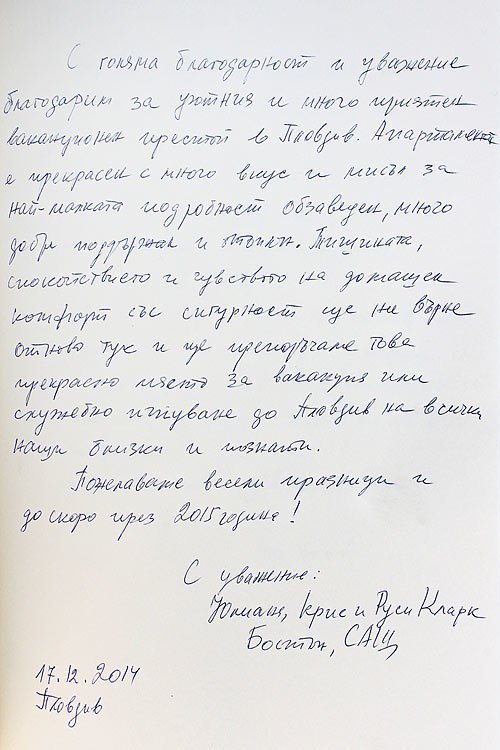 С голяма благодарност и уважение
благодарим за уютния и много приятен
ваканционен престой в Пловдив. Апартамента
е прекрасен с много вкус и мисъл за
най-малката подробност обзаведен, много
добре поддържан и отоплен. Тишината,
спокойствието и чувството на домашен
комфорт със сигурност ще ни върне
отново тук и ще препоръчаме това
прекрасно място за ваканция или
служебно пътуване до Пловдив на всички
наши близки и познати.
Пожелаваме весели празници и
до скоро през 2015 година!
С уважение:
Юлиана, Крис и Руси Кларк
Бостън, САЩ
17.12.2014
Пловдив